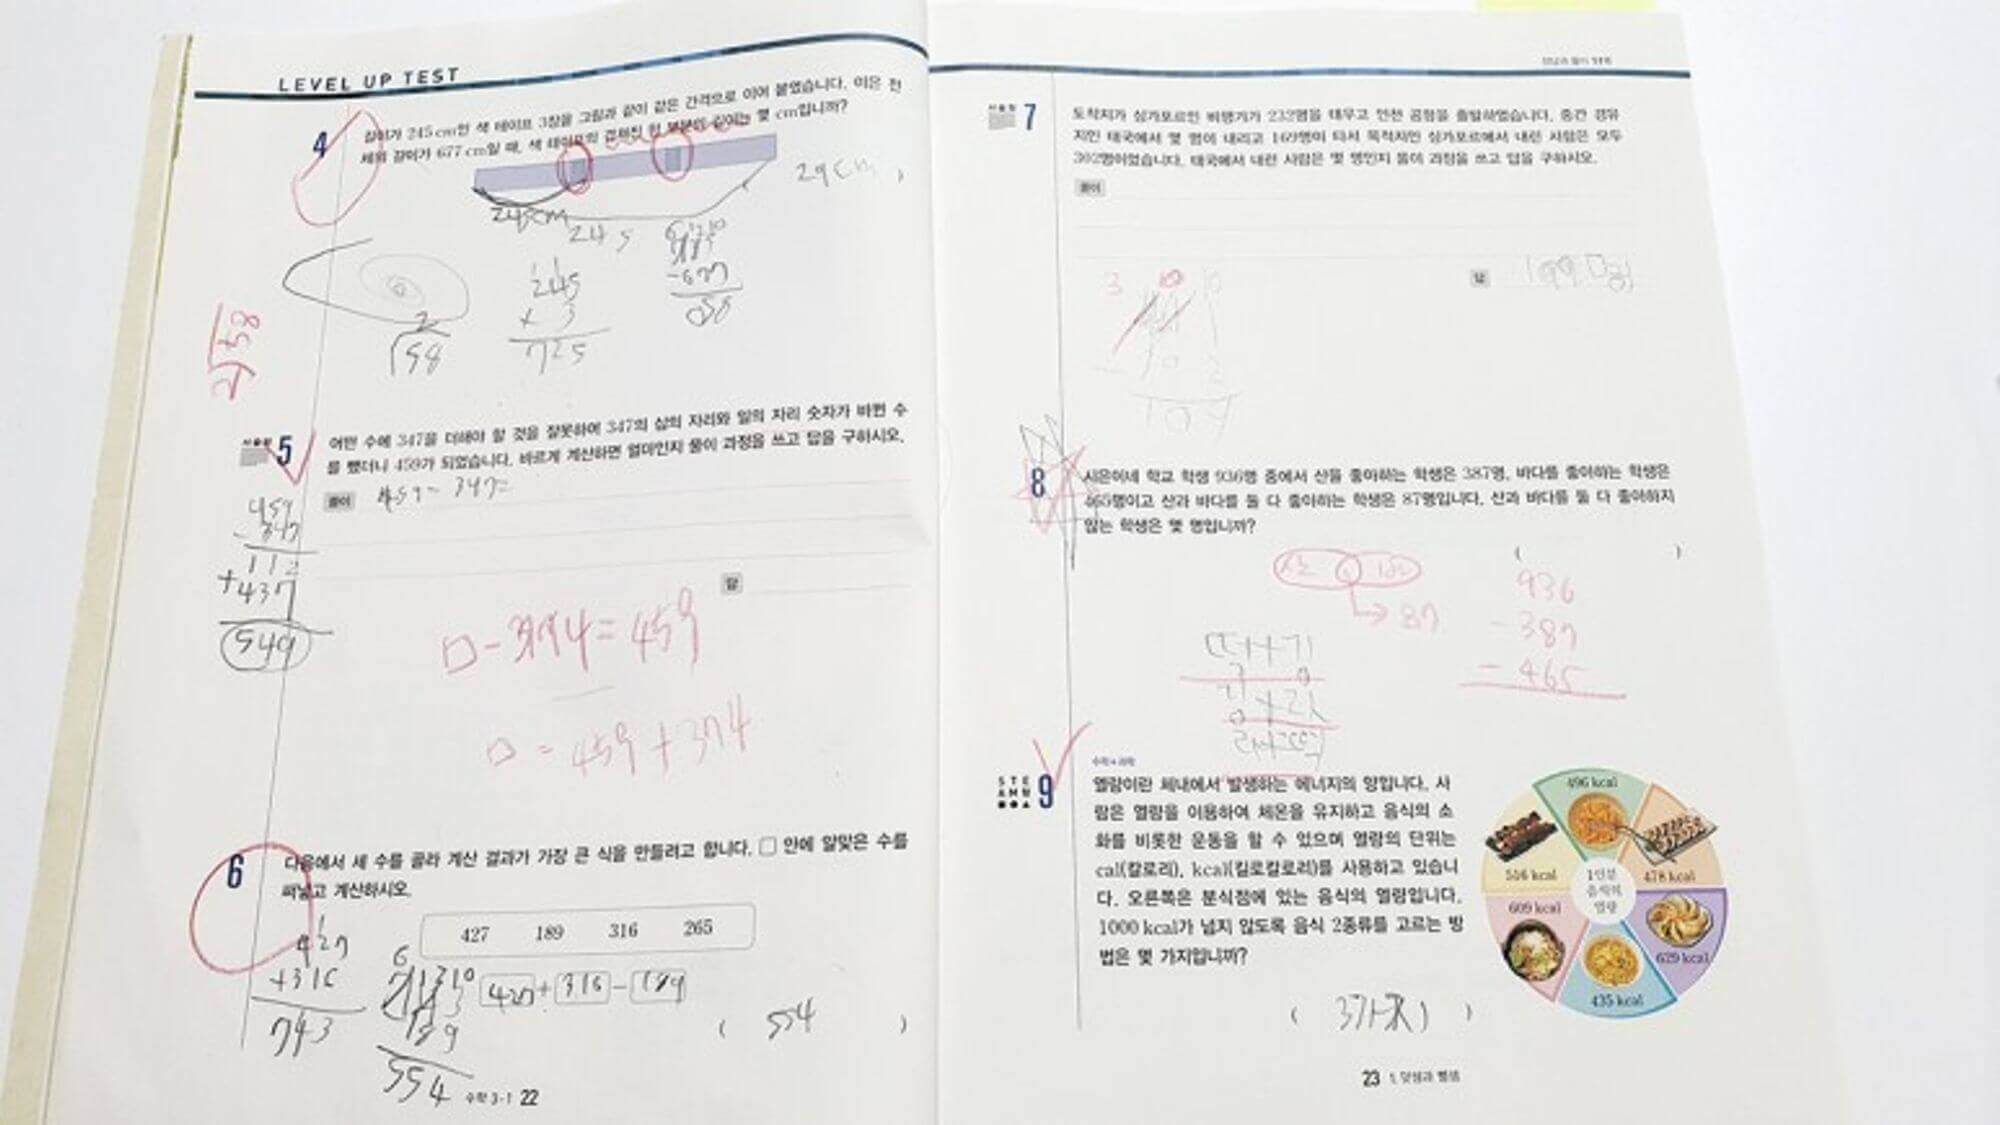 LEVEL UP TEST
4
길이가 245 cm인 색 테이프 3장을 그림과 같이 같은 간격으로 이어 붙였습니다. 이은 전
체의 길이가 677 cm일 때, 색 테이프의 겹쳐진 한 부분의 길이는 몇 cm입니까?
29cm
245cm
245
245
+ 3
725
-677
058
2
58
2 58
서술형
5
어떤 수에 347을 더해야 할 것을 잘못하여 347의 십의 자리와 일의 자리 숫자가 바뀐 수
를 뺐더니 459가 되었습니다. 바르게 계산하면 얼마인지 풀이 과정을 쓰고 답을 구하시오.
풀이
459-347=
답
459
-347
112
+437
549
□-374=459
□=459+374
6
다음에서 세 수를 골라 계산 결과가 가장 큰 식을 만들려고 합니다. □ 안에 알맞은 수를
써넣고 계산하시오.
427 189 316 265
427+316-189
( 554 )
427
+316
743
189
554
수학 3-1 22
서술형
7
도착지가 싱가포르인 비행기가 232명을 태우고 인천 공항을 출발하였습니다. 중간 경유
지인 태국에서 몇 명이 내리고 169명이 타서 목적지인 싱가포르에서 내린 사람은 모두
302명이었습니다. 태국에서 내린 사람은 몇 명인지 풀이 과정을 쓰고 답을 구하시오.
풀이
답
8
시은이네 학교 학생 936명 중에서 산을 좋아하는 학생은 387명, 바다를 좋아하는 학생은
465명이고 산과 바다를 둘 다 좋아하는 학생은 87명입니다. 산과 바다를 둘 다 좋아하지
않는 학생은 몇 명입니까?
( )
87
936
-387
-465
수학+과학
STE
AM형
9
열량이란 체내에서 발생하는 에너지의 양입니다. 사
람은 열량을 이용하여 체온을 유지하고 음식의 소
화를 비롯한 운동을 할 수 있으며 열량의 단위는
cal(칼로리), kcal(킬로칼로리)를 사용하고 있습니
다. 오른쪽은 분식점에 있는 음식의 열량입니다.
1000 kcal가 넘지 않도록 음식 2종류를 고르는 방
법은 몇 가지입니까?
( 3가지 )
496 kcal
516 kcal
478 kcal
1인분
음식의
열량
609 kcal
629 kcal
435 kcal
23 1. 덧셈과 뺄셈